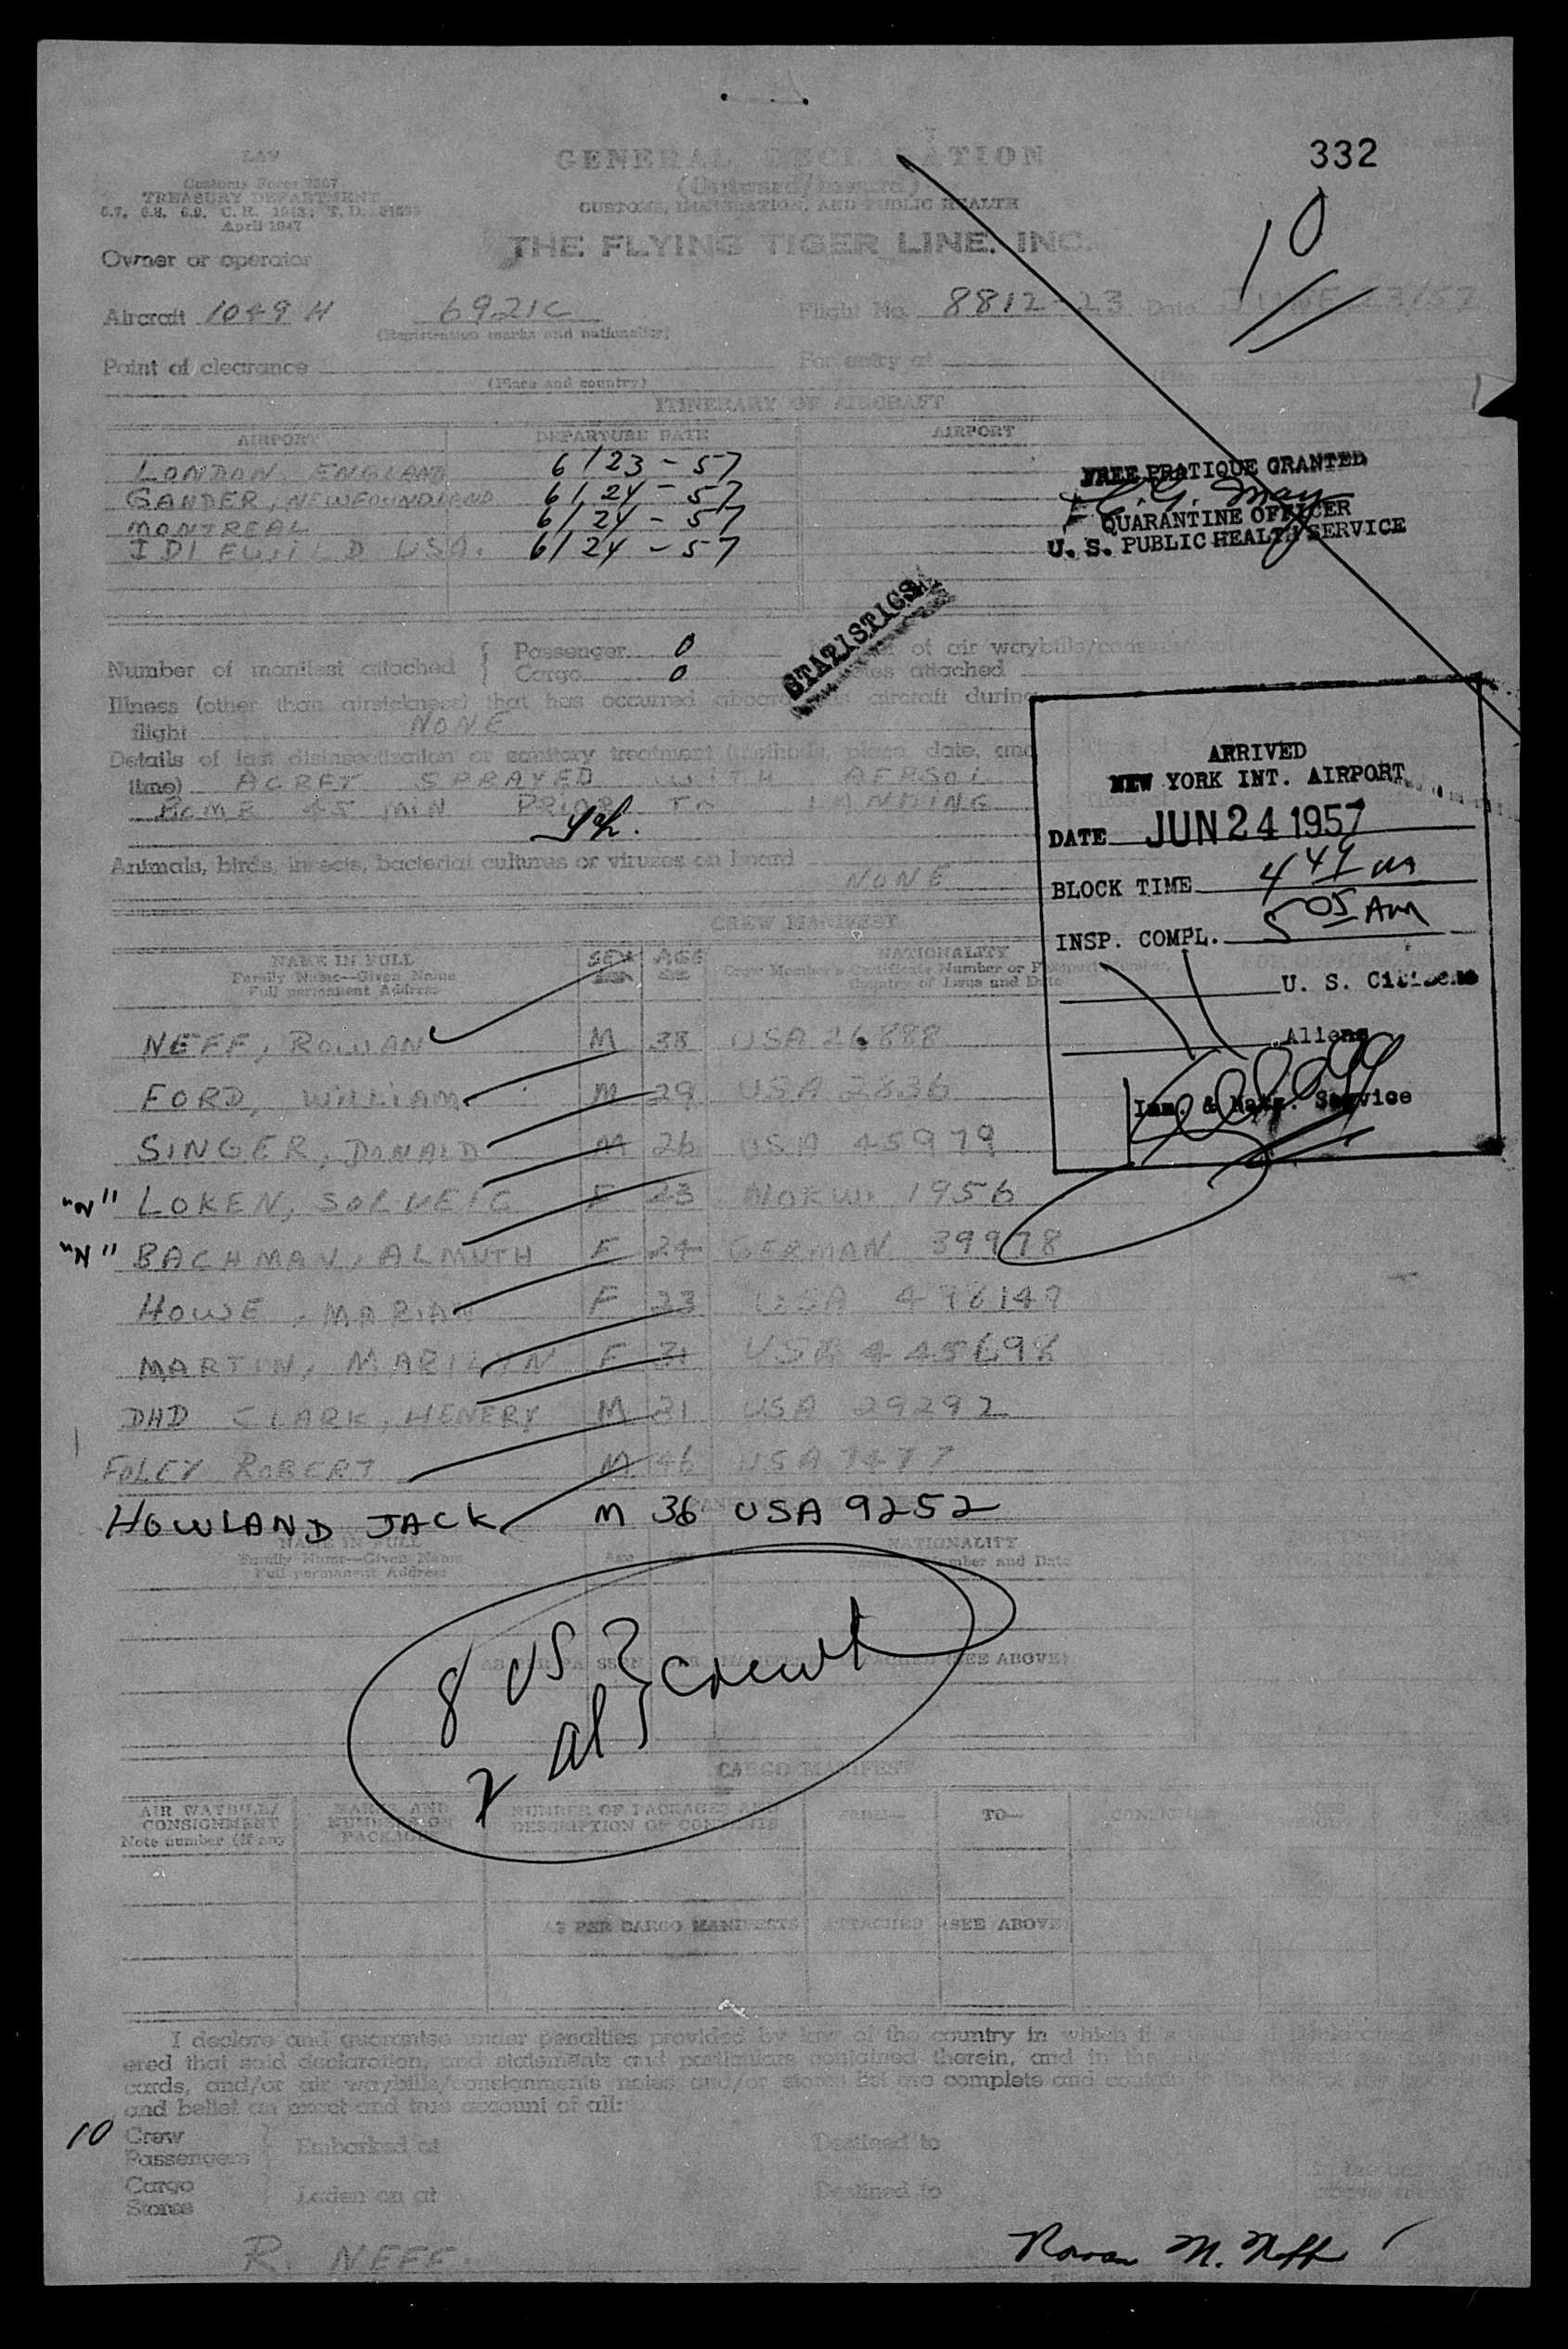 332
10
LAV
Customs Form 7507
TREASURY DEPARTMENT
6.7, 6.8, 6.9, C. R. 1943; T. D.
April 1947
GENERAL DECLARATION
(Outward/Inward)
CUSTOMS, IMMIGRATION, AND PUBLIC HEALTH
THE FLYING TIGER LINE. INC.
Owner or operator
Aircraft 1049 H 6921C Flight No. 8812-23 Date JUNE 23/57
(Registration marks and nationality)
Point of clearance For entry at
(Place and country)
ITINERARY OF AIRCRAFT
AIRPORT DEPARTURE DATE AIRPORT
LONDON, ENGLAND 6/23-57
GANDER, NEWFOUNDLAND 6/24-57
MONTREAL 6/24-57
IDLEWILD USA. 6/24-57
FREE PRATIQUE GRANTED
QUARANTINE OFFICER
U. S. PUBLIC HEALTH SERVICE
STATISTICS
Number of manifest attached { Passenger 0 of air waybills/
Cargo 0 attached
Illness (other than airsickness) that has occurred aboard aircraft during
flight NONE
Details of last disinsectization or sanitary treatment (methods, place, date, and
time) ACRFT SPRAYED WITH AERSOL
BOMB 45 MIN PRIOR TO LANDING
Animals, birds, insects, bacterial cultures or viruses on board
NONE
ARRIVED
NEW YORK INT. AIRPORT
DATE JUN 24 1957
BLOCK TIME 4 49 AM
INSP. COMPL. 5 05 AM
U. S. Citizens
Aliens
Imm. & Natz. Service
CREW MANIFEST
NAME IN FULL SEX AGE NATIONALITY
Family Name—Given Name Crew Member's Certificate Number or Passport Number,
Full permanent Address Country of Issue and Date
NEFF, ROWAN M 38 USA 26888
FORD, WILLIAM M 29 USA 2836
SINGER, DONALD M 26 USA 45979
"N" LOKEN, SOLVEIG F 23 NORW. 1956
"N" BACHMAN, ALMUTH F 24 GERMAN 39978
HOWE, MARIAN F 23 USA 498149
MARTIN, MARILYN F 31 USA 445698
DHD CLARK, HENERY M 31 USA 29292
FOLEY ROBERT M 46 USA 7477
HOWLAND JACK M 36 USA 9252
NAME IN FULL Age NATIONALITY
Family Name—Given Name Number and Date
Full permanent Address
8 US } crew
2 al
AS PER PASSENGER MANIFEST ATTACHED (SEE ABOVE)
CARGO MANIFEST
AIR WAYBILL/ MARKS AND NUMBER OF PACKAGES AND FROM— TO—
CONSIGNMENT NUMBERS ON DESCRIPTION OF CONTENTS
Note number (if any PACKAGES
AS PER CARGO MANIFESTS ATTACHED (SEE ABOVE)
I declare and guarantee under penalties provided by law of the country in which this
ered that said declaration, and statements and particulars contained therein, and in the
cards, and/or air waybills/consignments notes and/or stores list are complete and contain to the best of my
and belief an exact and true account of all:
10 Crew
Passengers Embarked at Destined to
Cargo
Stores Laden on at Destined to
R. NEFF. Rowan M. Neff